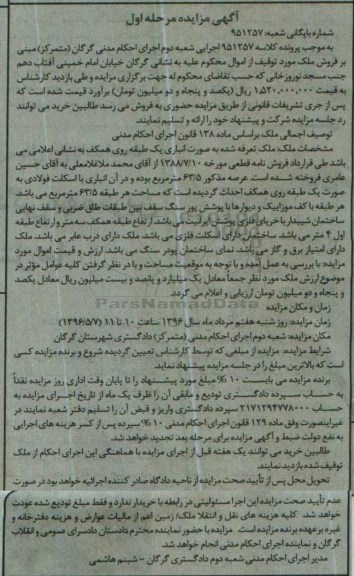 آگهی مزایده مرحله اول
شماره بایگانی شعبه: ۹۵۱۲۵۷
به موجب پرونده کلاسه ۹۵۱۲۵۷ اجرایی شعبه دوم اجرای احکام مدنی گرگان (متمرکز) مبنی
بر فروش ملک مورد توقیف از اموال محکوم علیه به نشانی گرگان خیابان امام خمینی آفتاب دهم
جنب مسجد نوروزخانی که حسب تقاضای محکوم له جهت برگزاری مزایده و طی بازدید کارشناس
به قیمت ۱،۵۲۰،۰۰۰،۰۰۰ ریال (یکصد و پنجاه و دو میلیون تومان) برآورد قیمت شده است که
پس از جری تشریفات قانونی از طریق مزایده حضوری به فروش می رسد طالبین خرید می توانند
در جلسه مزایده شرکت و پیشنهاد خود را ارائه و تسلیم نمایند.
توصیف اجمالی ملک براساس ماده ۱۳۸ قانون اجرای احکام مدنی
مشخصات ملک: ملک تعرفه شده به صورت انباری یک طبقه روی همکف به نشانی اعلامی می
باشد طی قرارداد فروش نامه قطعی مورخه ۱۳۸۸/۷/۱۰ از آقای محمد ملاغلامعلی به آقای حسین
عامری فروخته شده است. عرصه مذکور ۶۳/۵ مترمربع بوده و در آن انباری با اسکلت فولادی به
صورت یک طبقه روی همکف احداث گردیده است که مساحت هر طبقه ۶۳/۵ مترمربع می باشد
هر طبقه با کف موزاییک و دیوارها با پوشش پور سنگ سقف بین طبقات طاق ضربی و سقف نهایی
ساختمان شیبدار با خرپای فلزی پوشش ایرانیت می باشد. ارتفاع طبقه همکف سه متر و ارتفاع طبقه
اول ۴ متر می باشد. ساختمان دارای اسکلت فلزی می باشد. ملک دارای درب عابر می باشد. ملک
دارای امتیاز برق و گاز می باشد. نمای ساختمان پودر سنگ می باشد. ارزش و قیمت اموال مورد
مزایده: با بررسی به عمل آمده و با توجه به موقعیت مساحت و با در نظر گرفتن کلیه عوامل مؤثر در
موضوع ارزش ملک مورد نظر جمعاً معادل یک میلیارد و پانصد و بیست میلیون ریال معادل یکصد
و پنجاه و دو میلیون تومان ارزیابی و اعلام می گردد.
زمان و مکان مزایده
زمان مزایده: روز شنبه هفتم مرداد ماه سال ۱۳۹۶ ساعت ۱۰ تا ۱۱ (۱۳۹۶/۵/۷)
مکان مزایده: شعبه دوم اجرای احکام مدنی (متمرکز) دادگستری شهرستان گرگان
شرایط مزایده: مزایده از مبلغی که توسط کارشناس تعیین گردیده شروع و برنده مزایده کسی
است که بالاترین مبلغ را در جلسه مزایده پیشنهاد نماید.
برنده مزایده می بایست ۱۰٪ مبلغ مورد پیشنهاد را تا پایان وقت اداری روز مزایده نقداً
به حساب سپرده دادگستری تودیع و مابقی آن را ظرف یک ماه از تاریخ اجرای مزایده به
حساب ۲۱۷۱۲۹۴۷۷۸۰۰۰ سپرده دادگستری واریز و قبض آن را تسلیم دفتر شعبه نمایند در
غیر اینصورت وفق ماده ۱۲۹ قانون اجرای احکام مدنی ۱۰٪ سپرده پس از کسر هزینه های اجرایی
به نفع دولت ضبط و آگهی مزایده برای مرحله بعد تجدید خواهد شد.
طالبین خرید می توانند یک هفته قبل از اجرای مزایده با هماهنگی این اجرای احکام از ملک
توقیف شده بازدید نمایند.
تحویل محل پس از تأیید صحت مزایده از ناحیه دادگاه صادر کننده اجرائیه خواهد بود در صورت
عدم تأیید صحت مزایده این اجرا مسئولیتی در رابطه با خریدار ندارد و فقط مبلغ تودیع شده عودت
خواهد شد. کلیه هزینه های نقل و انتقال ملک/ زمین اعم از مالیات عوارض و هزینه دفترخانه و
غیره برعهده برنده مزایده است. مزایده با حضور نماینده محترم دادستان دادسرای عمومی و انقلاب
گرگان و نماینده اجرای احکام مدنی انجام خواهد شد.
مدیر اجرای احکام مدنی شعبه دوم دادگستری گرگان - شبنم هاشمی
ParsNamadData